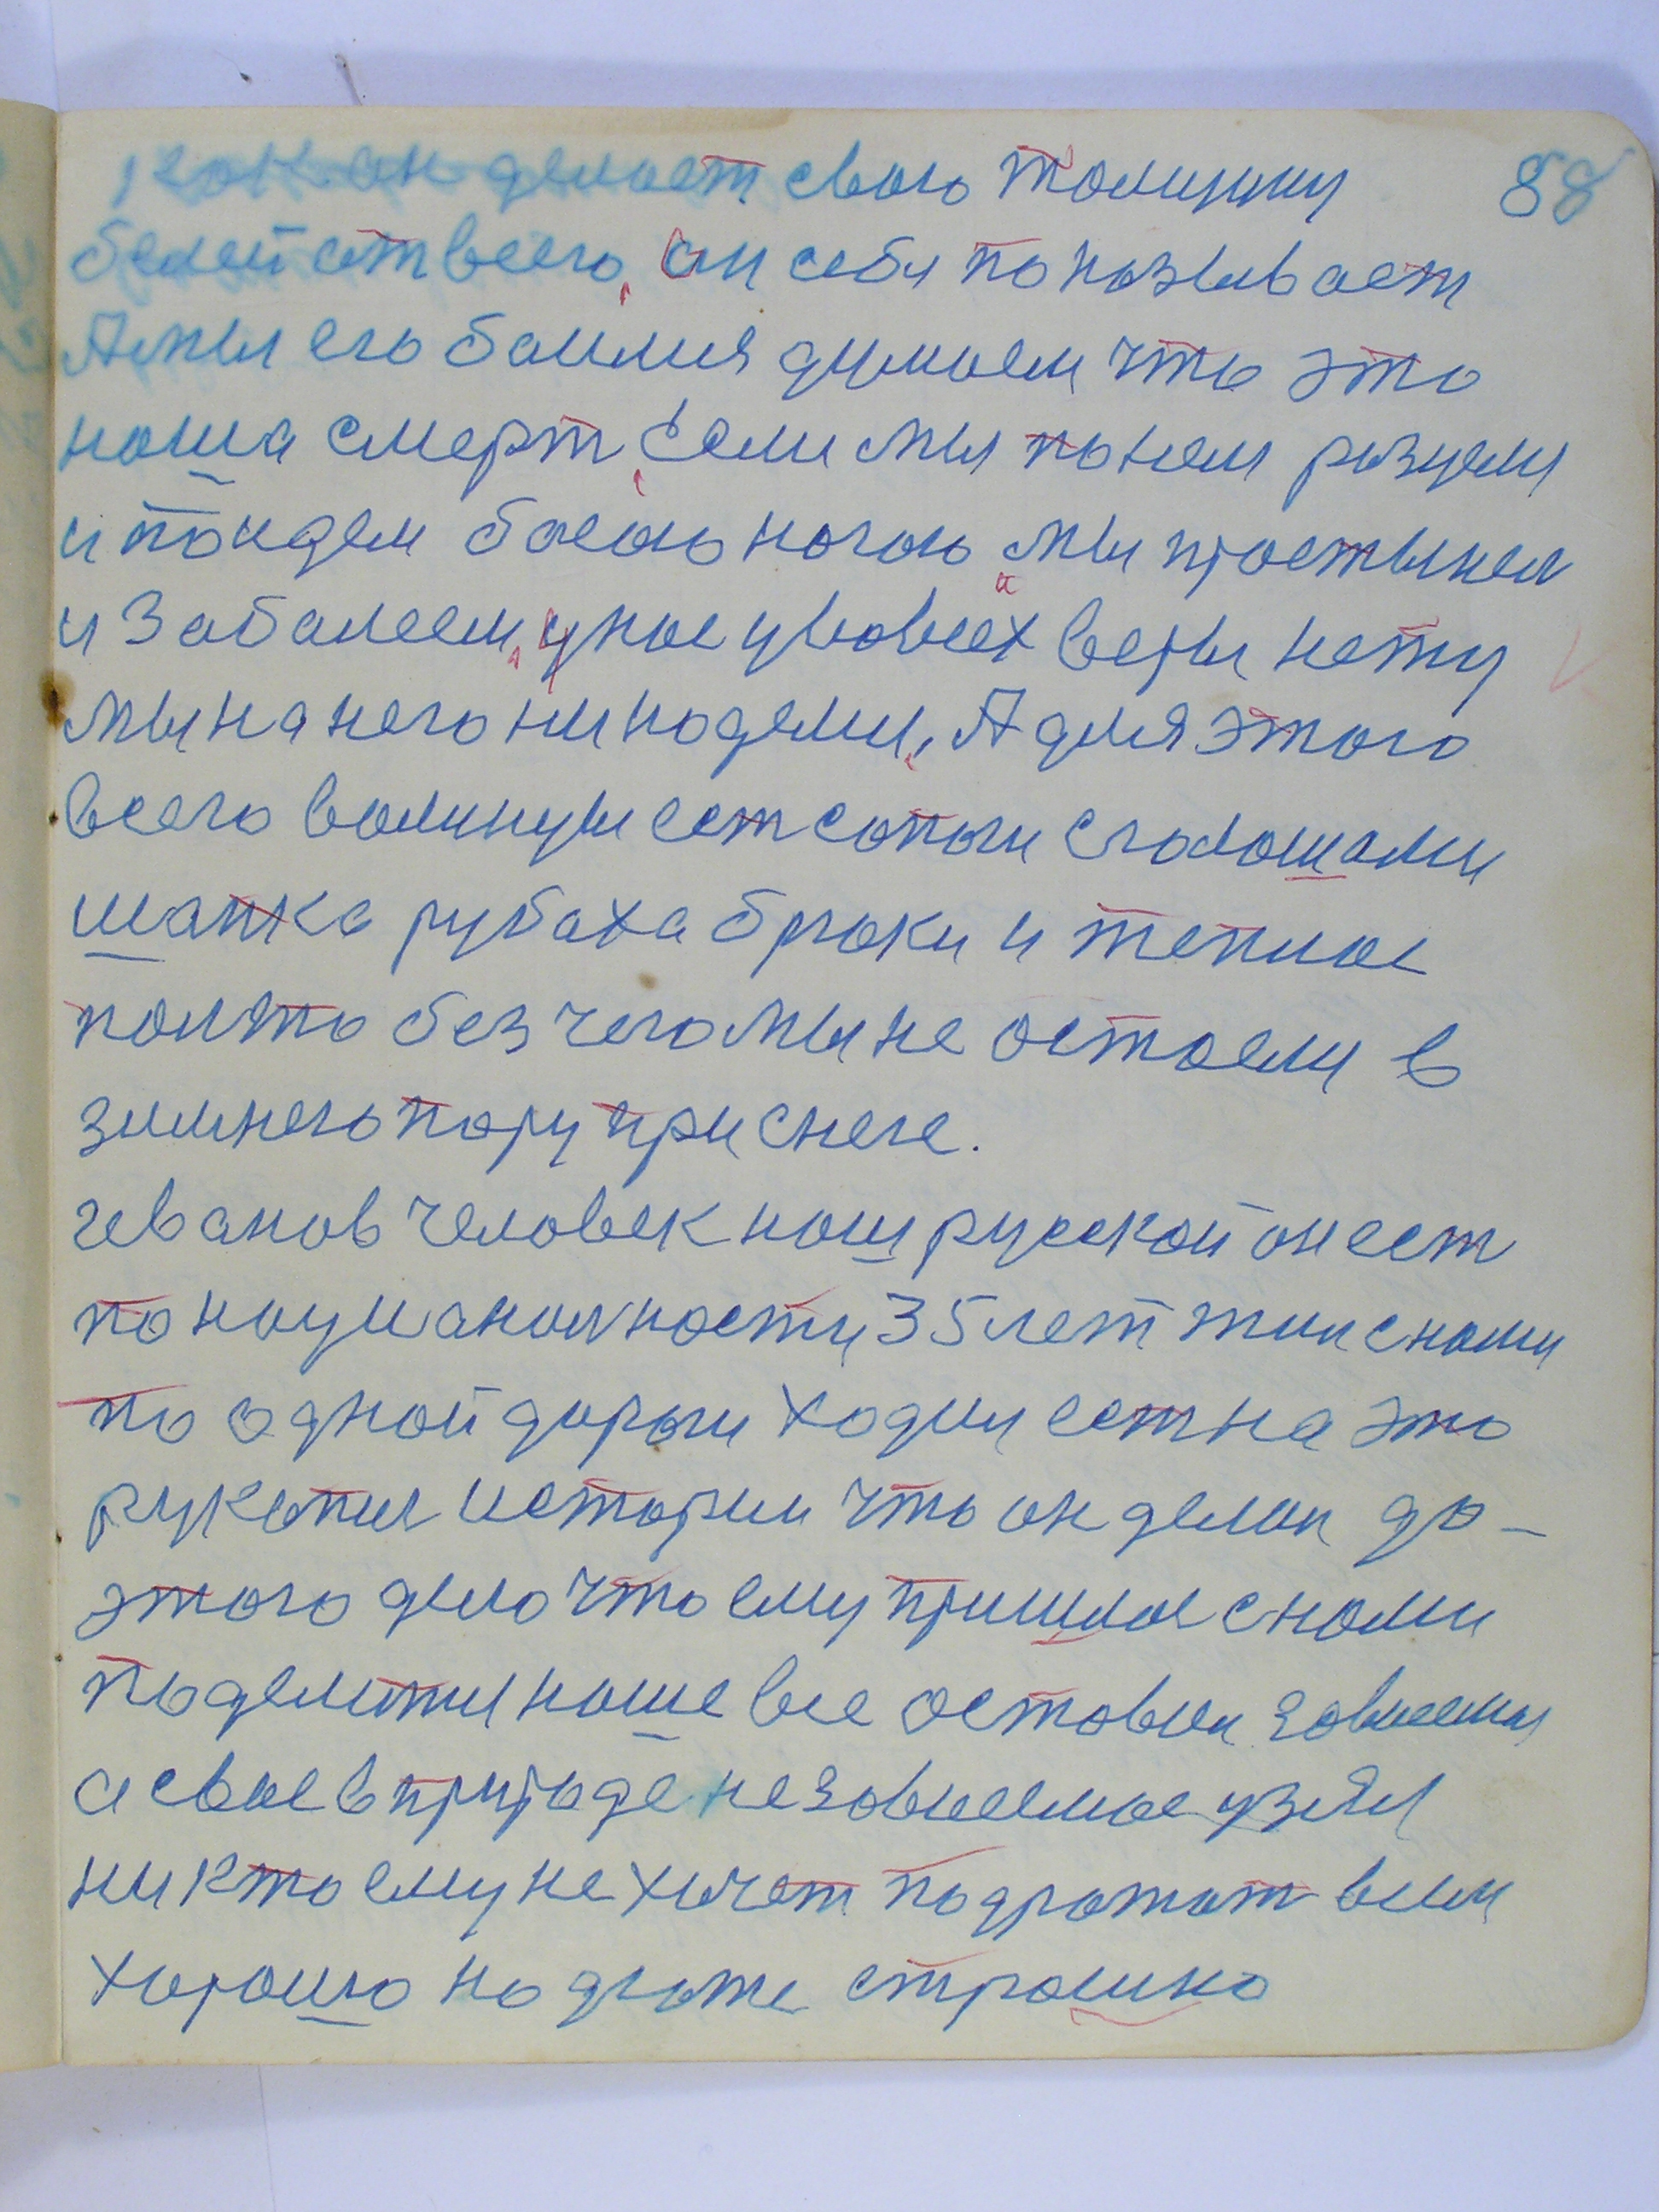 88
как он делает свою толщину
белей от всего, он себя показывает
А мы его баимся думаем что это
наша смерт, Если мы по нем разуем
и пойдем босою ногою мы простынем
и забалеем, у нас у во всех веры нету
мы на него ни надеми, А для этого
всего волинуы ест сапоги с голошами
шапка рубаха брюки и теплое
полято без чего мы не остаеми в
зимнею пору при снеге.
Иванов человек наш русской он ест
по нацианалности 35 лет жил с нами
по одной дороги ходил ест на это
рукопис истории что он делал до-
этого дело что ему пришлос с нами
поделитя наше все оставил зависемы
а свое в природе независемое узял
ни кто ему не хочет подрожат всим
хорошо но дюже страшно